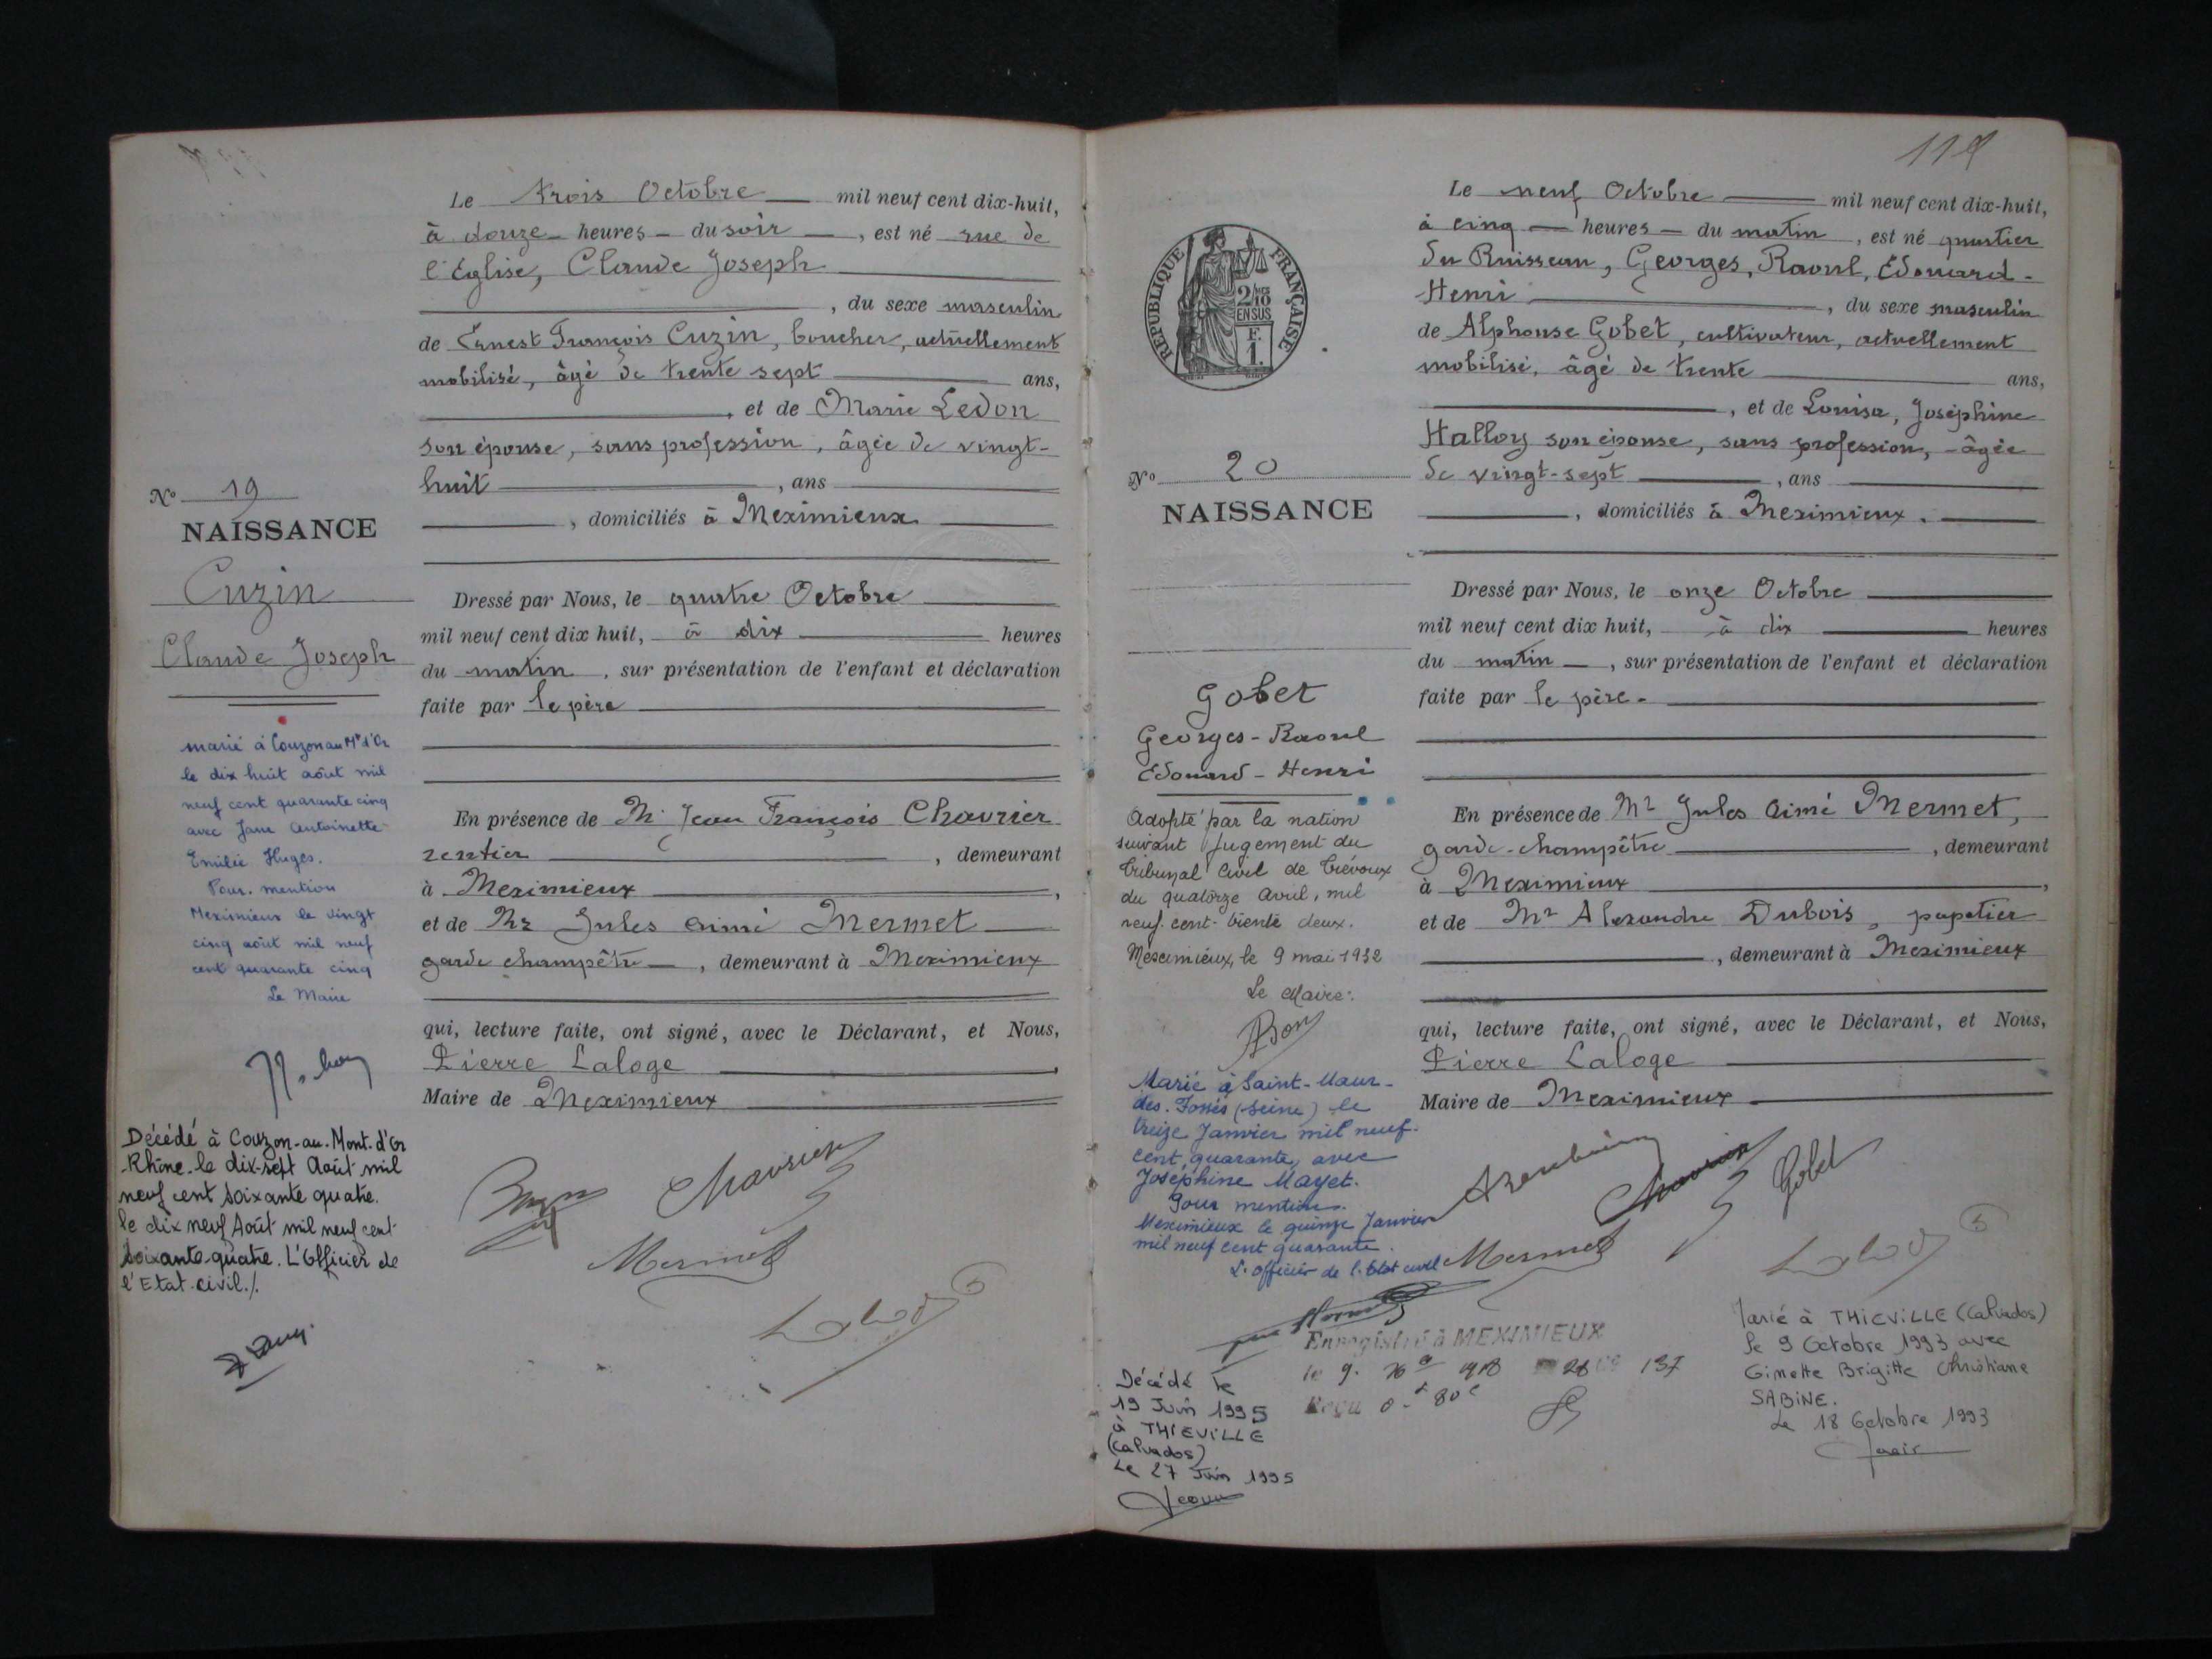 Le trois Octobre mil neuf cent dix-huit,
à douze heures du soir, est né rue de
l'Église, Claude Joseph
, du sexe masculin
de Ernest François Cuzin, boucher, actuellement
mobilisé, âgé de trente sept ans,
, et de Marie Ledon
son épouse, sans profession, âgée de vingt-
huit, ans
, domiciliés à Meximieux
Dressé par Nous, le quatre Octobre
mil neuf cent dix huit, à dix heures
du matin, sur présentation de l'enfant et déclaration
faite par le père
En présence de Mr Jean François Chavrier
rentier, demeurant
à Meximieux,
et de Mr Jules Aimé Mermet
garde champêtre, demeurant à Meximieux
qui, lecture faite, ont signé, avec le Déclarant, et Nous,
Pierre Laloge,
Maire de Meximieux
Chavrier
Mermet
No 19
NAISSANCE
Cuzin
Claude Joseph
marié à Couzon au Mt d'Or
le dix huit août mil
neuf cent quarante cinq
avec Jane Antoinette
Emilie Huges.
Pour mention
Meximieux le vingt
cinq août mil neuf
cent quarante cinq
Le Maire
Décédé à Couzon-au-Mont-d'Or
-Rhône- le dix-sept Août mil
neuf cent soixante quatre.
le dix neuf Août mil neuf cent
soixante-quatre. L'Officier de
l'Etat-civil./.
119
RÉPUBLIQUE FRANÇAISE
2/10
EN SUS
F.
1.
No 20
NAISSANCE
Gobet
Georges-Raoul
Edouard-Henri
Adopté par la nation
suivant jugement du
Tribunal Civil de Trévoux
du quatorze Avril, mil
neuf-cent-trente deux.
Meximieux, le 9 mai 1932
Le Maire:
Marié à Saint-Maur-
des-Fossés (Seine) le
treize Janvier mil neuf-
cent quarante, avec
Joséphine Mayet.
Pour mention.
Meximieux le quinze Janvier
mil neuf cent quarante.
L'officier de l'état civil
Décédé le
19 Juin 1995
à THIEVILLE
(Calvados)
Le 27 Juin 1995
Le neuf Octobre mil neuf cent dix-huit,
à cinq heures du matin, est né quartier
du Ruisseau, Georges, Raoul, Edouard-
Henri, du sexe masculin
de Alphonse Gobet, cultivateur, actuellement
mobilisé, âgé de trente ans,
, et de Louisa, Joséphine
Halloy son épouse, sans profession, âgée
de vingt-sept, ans
, domiciliés à Meximieux.
Dressé par Nous, le onze Octobre
mil neuf cent dix huit, à dix heures
du matin, sur présentation de l'enfant et déclaration
faite par le père.
En présence de Mr Jules Aimé Mermet,
garde-champêtre, demeurant
à Meximieux,
et de Mr Alexandre Dubois, papetier
, demeurant à Meximieux
qui, lecture faite, ont signé, avec le Déclarant, et Nous,
Pierre Laloge
Maire de Meximieux
Gobet
Mermet
Enregistré à MEXIMIEUX
Marié à THIEVILLE (Calvados)
le 9 Octobre 1993 avec
Ginette Brigitte Christiane
SABINE.
Le 18 Octobre 1993